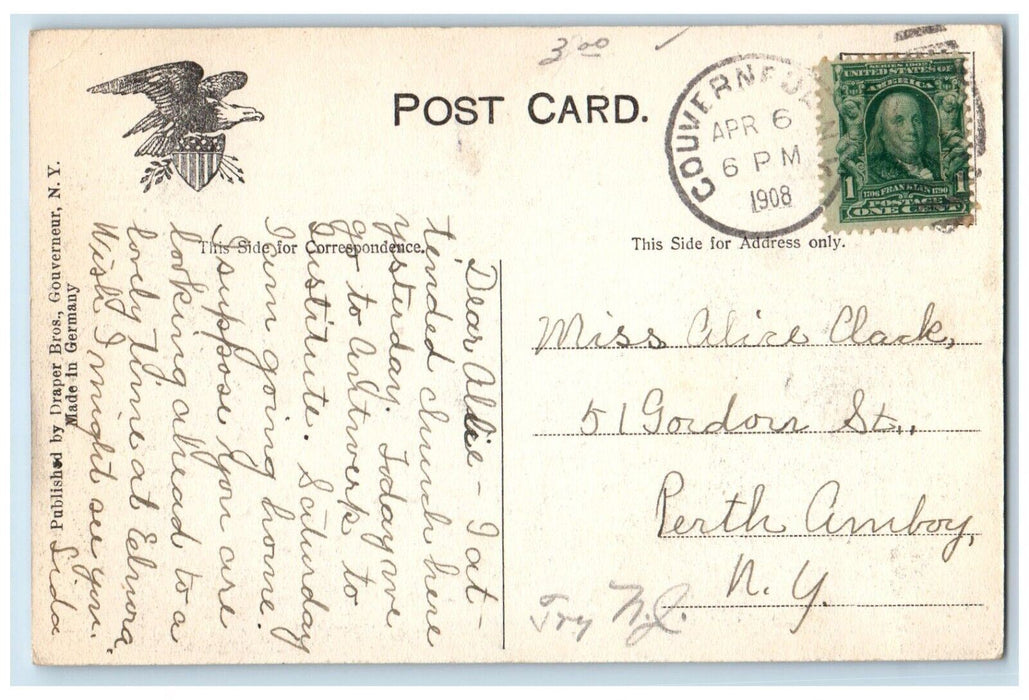 3.00
POST CARD.
GOUVERNEUR, N.Y.
APR 6
6 PM
1908
SERIES 1902
UNITED STATES OF
AMERICA
1706 FRANKLIN 1790
1 POSTAGE 1
ONE CENT
Published by Draper Bros., Gouverneur, N. Y.
Made in Germany
This Side for Correspondence.
This Side for Address only.
Dear Alice - I at-
tended church here
yesterday. Today we
go to Antwerp to
Institute. Saturday
I am going home.
I suppose you are
looking ahead to a
lovely time at Elnora.
Wish I might see you.
Lida
Miss Alice Clark,
51 Gordon St.,
Perth Amboy,
N. Y.
Try N.J.